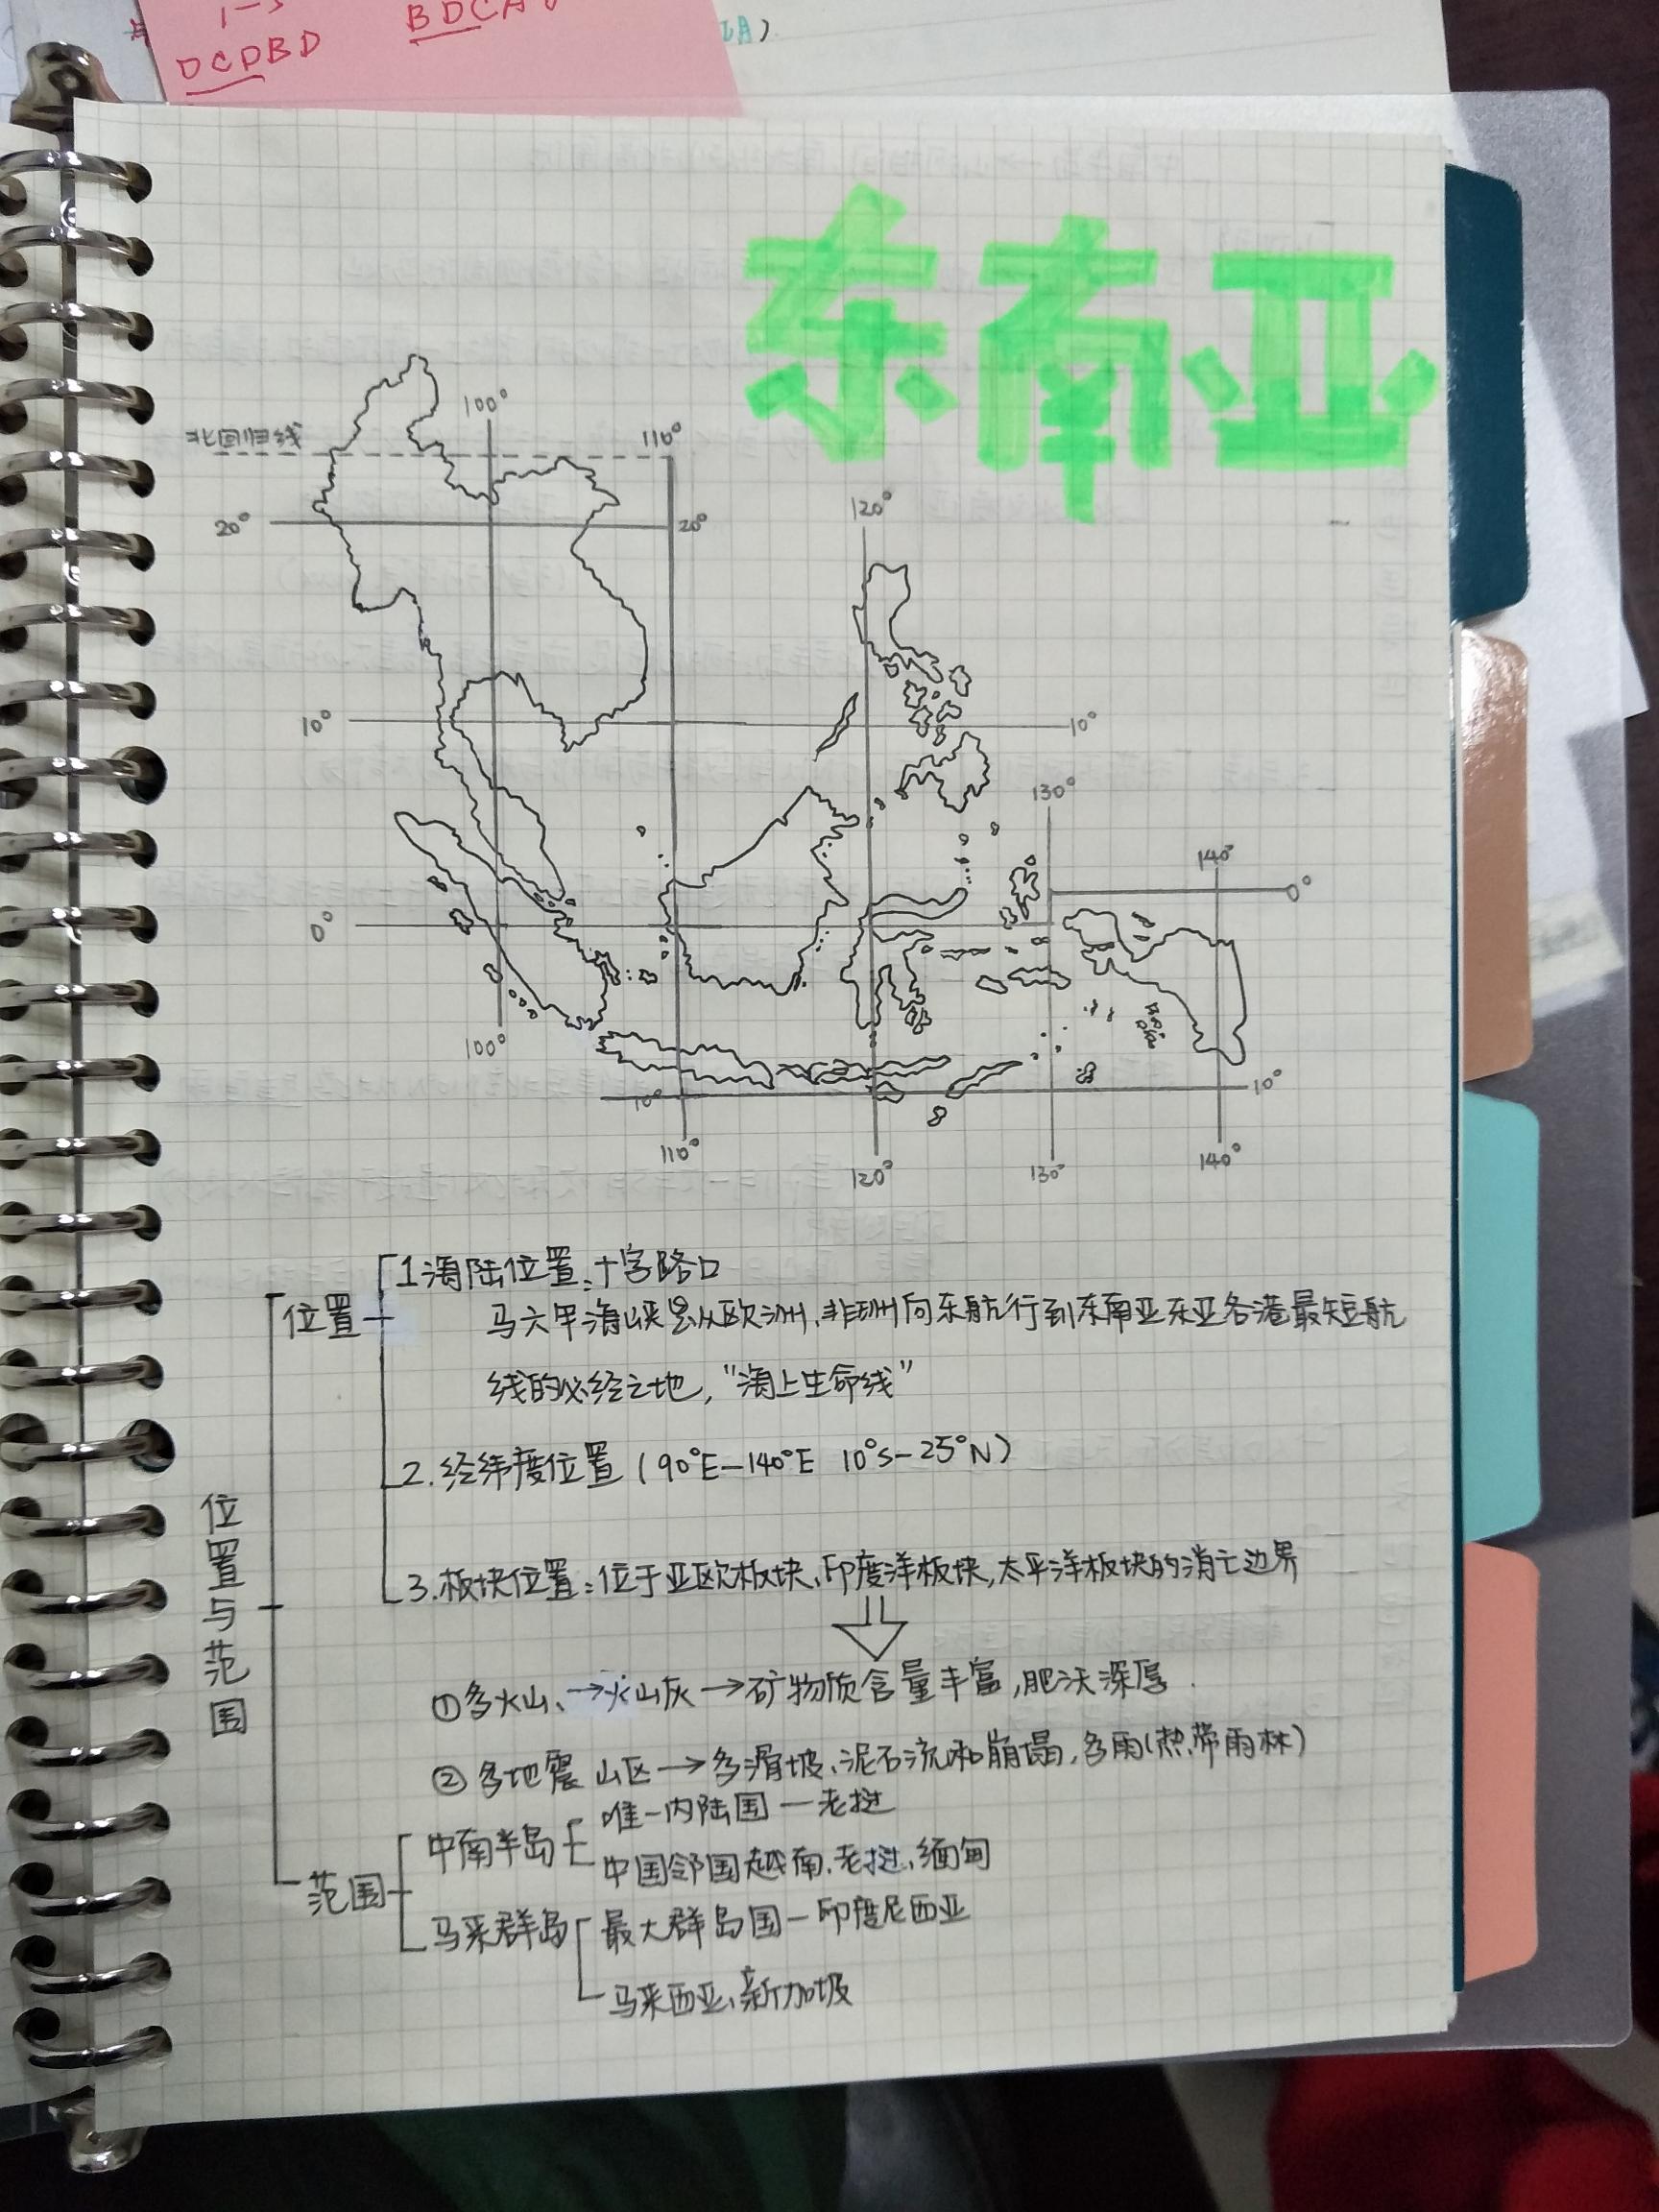 DCDBD
东南亚
100°
北回归线
110°
20°
20°
120°
10°
10°
130°
140°
0°
0°
100°
10°
10°
110°
120°
130°
140°
位置与范围
位置
1海陆位置:十字路口
马六甲海峡是从欧洲、非洲向东航行到东南亚东亚各港最短航
线的必经之地,“海上生命线”
2.经纬度位置(90°E-140°E 10°S-25°N)
3.板块位置:位于亚欧板块、印度洋板块,太平洋板块的消亡边界
①多火山、→火山灰→矿物质含量丰富,肥沃深厚.
②多地震 山区→多滑坡、泥石流和崩塌,多雨(热带雨林)
范围
中南半岛
唯一内陆国—老挝
中国邻国越南、老挝、缅甸
马来群岛
最大群岛国—印度尼西亚
马来西亚、新加坡